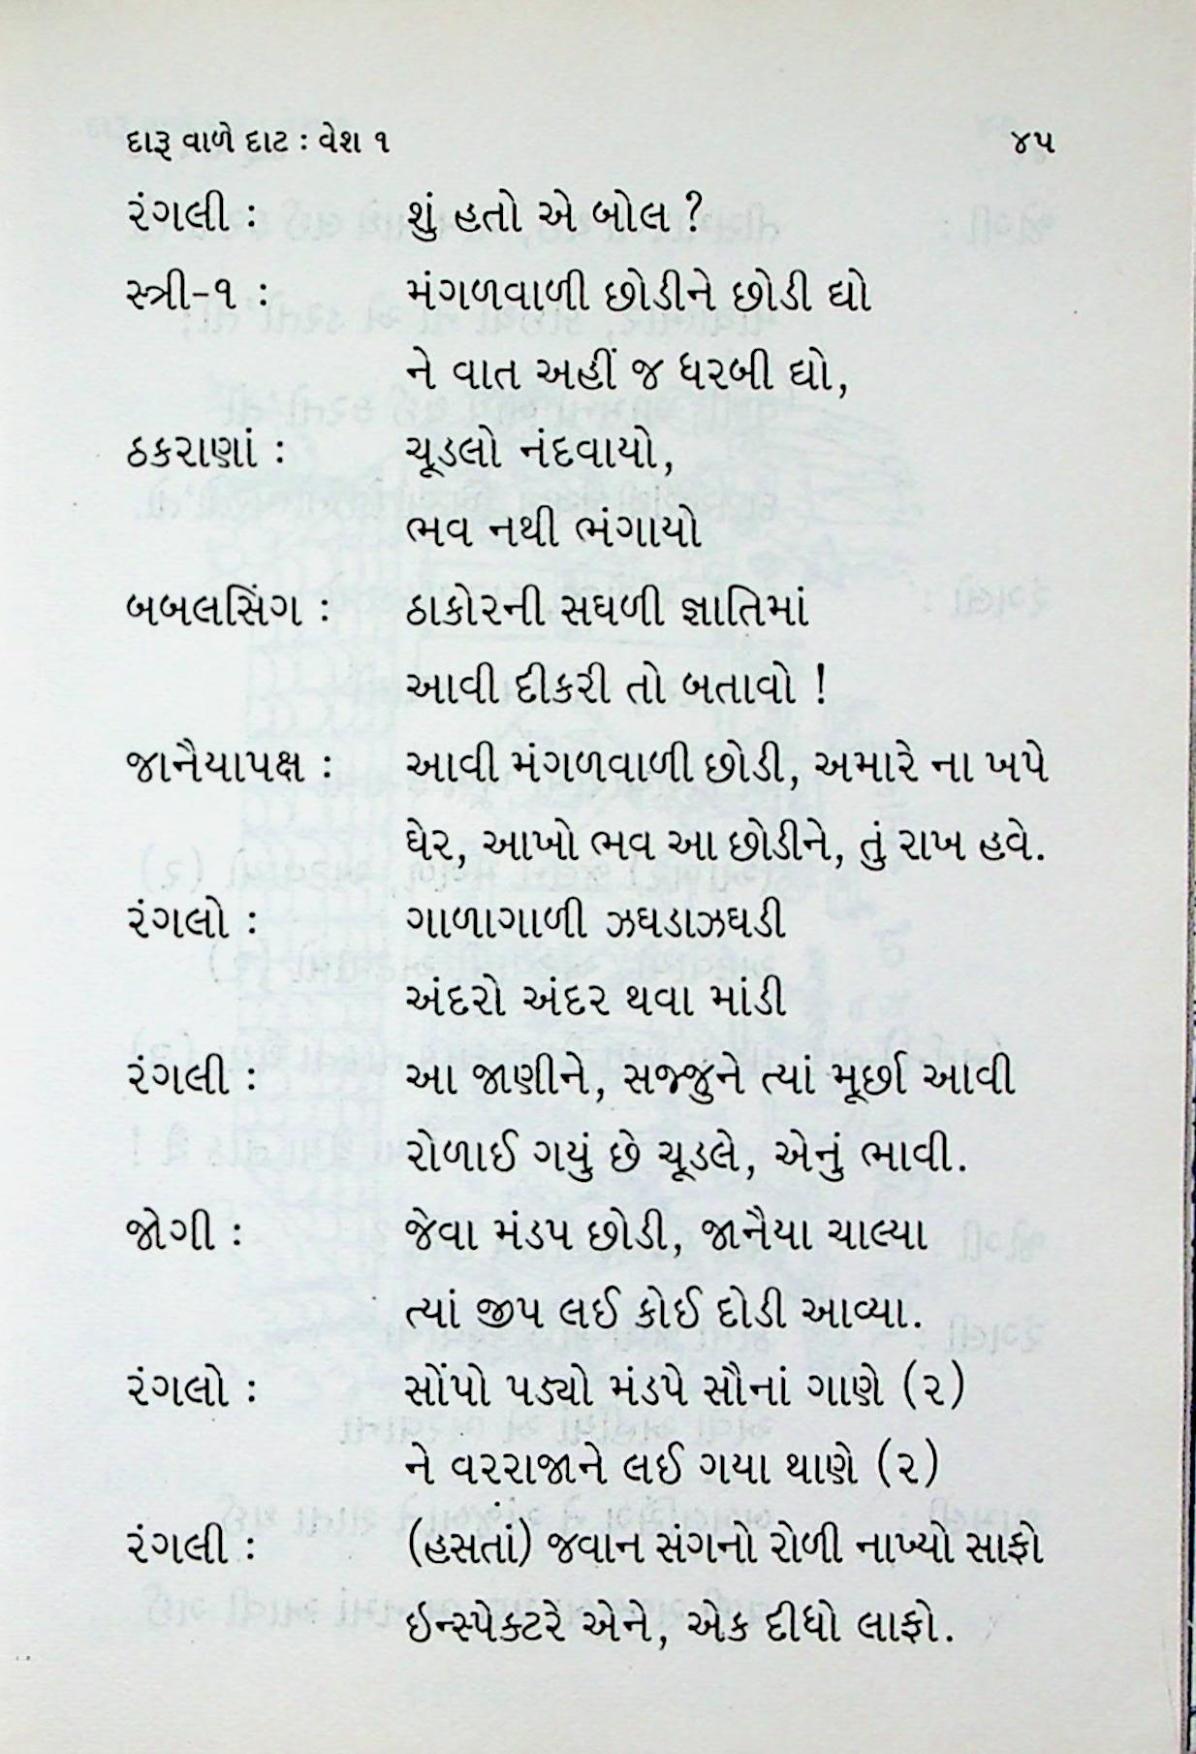 દારૂ વાળે દાટ : વેશ ૧ ૪૫
રંગલી : શું હતો એ બોલ ?
સ્ત્રી-૧ : મંગળવાળી છોડીને છોડી દ્યો
ને વાત અહીં જ ધરબી દ્યો,
ઠકરાણાં : ચૂડલો નંદવાયો,
ભવ નથી ભંગાયો
બબલસિંગ : ઠાકોરની સઘળી જ્ઞાતિમાં
આવી દીકરી તો બતાવો !
જાનૈયાપક્ષ : આવી મંગળવાળી છોડી, અમારે ના ખપે
ઘેર, આખો ભવ આ છોડીને, તું રાખ હવે.
રંગલો : ગાળાગાળી ઝઘડાઝઘડી
અંદરો અંદર થવા માંડી
રંગલી : આ જાણીને, સજ્જુને ત્યાં મૂર્છા આવી
રોળાઈ ગયું છે ચૂડલે, એનું ભાવી.
જોગી : જેવા મંડપ છોડી, જાનૈયા ચાલ્યા
ત્યાં જીપ લઈ કોઈ દોડી આવ્યા.
રંગલો : સોંપો પડ્યો મંડપે સૌનાં ગાણે (૨)
ને વરરાજાને લઈ ગયા થાણે (૨)
રંગલી : (હસતાં) જવાન સંગનો રોળી નાખ્યો સાફો
ઇન્સ્પેક્ટરે એને, એક દીધો લાફો.